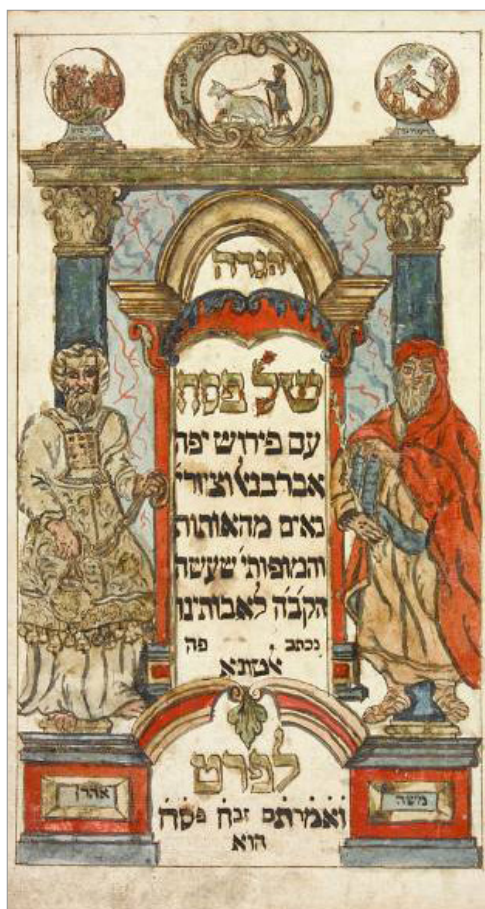 הגדה
של פסח
עם פירוש יפה
אברבנאל וציורי'
נאים מהאותות
והמופותי' שעשה
הקב"ה לאבותינו
נכתב פה
אלטונא
לפרט
ואמרתם זבח פסח
הוא
אהרן
משה